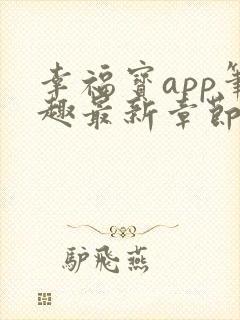 幸福寶app筆
趣最新章節
驴飛燕